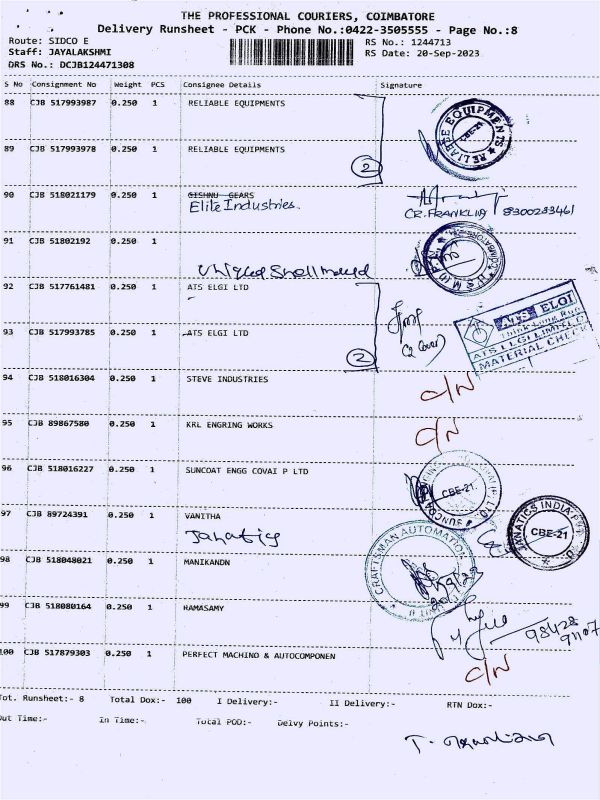 THE PROFESSIONAL COURIERS, COIMBATORE
Delivery Runsheet - PCK - Phone No.:0422-3505555 - Page No.:8
Route: SIDCO E
RS No.: 1244713
Staff: JAYALAKSHMI
RS Date: 20-Sep-2023
DRS No.: DCJB124471308
S No Consignment No Weight PCS Consignee Details Signature
88 CJB 517993987 0.250 1 RELIABLE EQUIPMENTS
RELIABLE EQUIPMENTS
CBE-21
89 CJB 517993978 0.250 1 RELIABLE EQUIPMENTS
2
90 CJB 518021179 0.250 1 GISHNU GEARS
Elite Industries.
CR.FRANKLIN 8300283461
91 CJB 51802192 0.250 1
92 CJB 517761481 0.250 1 ATS ELGI LTD
ATS ELGI
C2 Cover
ATS ELGI LIMITED
MATERIAL CHECK
93 CJB 517993785 0.250 1 ATS ELGI LTD
2
94 CJB 518016304 0.250 1 STEVE INDUSTRIES
C/N
95 CJB 89867580 0.250 1 KRL ENGRING WORKS
C/N
96 CJB 518016227 0.250 1 SUNCOAT ENGG COVAI P LTD
CBE-21
97 CJB 89724391 0.250 1 VANITHA
Janatics
JANATICS INDIA
CBE-21
CRAFTSMAN AUTOMATION
98 CJB 518048021 0.250 1 MANIKANDN
99 CJB 518080164 0.250 1 RAMASAMY
98428
91107
100 CJB 517879303 0.250 1 PERFECT MACHINO & AUTOCOMPONEN
C/N
Tot. Runsheet:- 8 Total Dox:- 100 I Delivery:- II Delivery:- RTN Dox:-
Out Time:- In Time:- Total POD:- Delvy Points:-